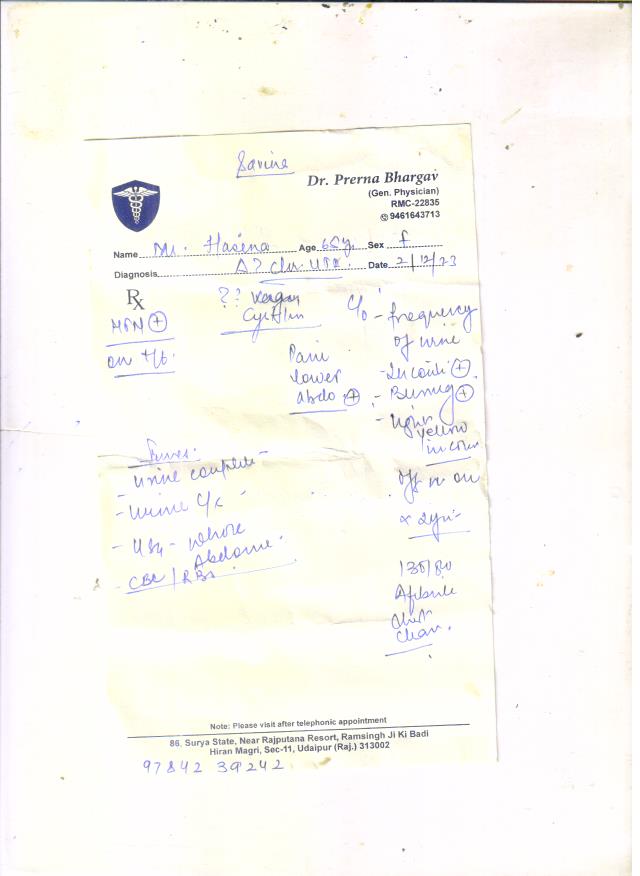 Savina
Dr. Prerna Bhargav
(Gen. Physician)
RMC-22835
9461643713
Name Mr. Hasena Age 65y. Sex f
Diagnosis Δ? Chr. UTI. Date 2/12/23
Rx
HTN +
on t/t.
??
Cystitis
Pain
lower
abdo +
C/o - frequency
of urine
- Inconti +
- Burning +
- light
yellow
in colour
off n on
x 2yr
130/80
Afebrile
Chest
Clear.
- Urine complete -
- Urine C/s -
- USG - whole
Abdomen.
- CBC / RBS
Note: Please visit after telephonic appointment
86, Surya State, Near Rajputana Resort, Ramsingh Ji Ki Badi
Hiran Magri, Sec-11, Udaipur (Raj.) 313002
97842 39242